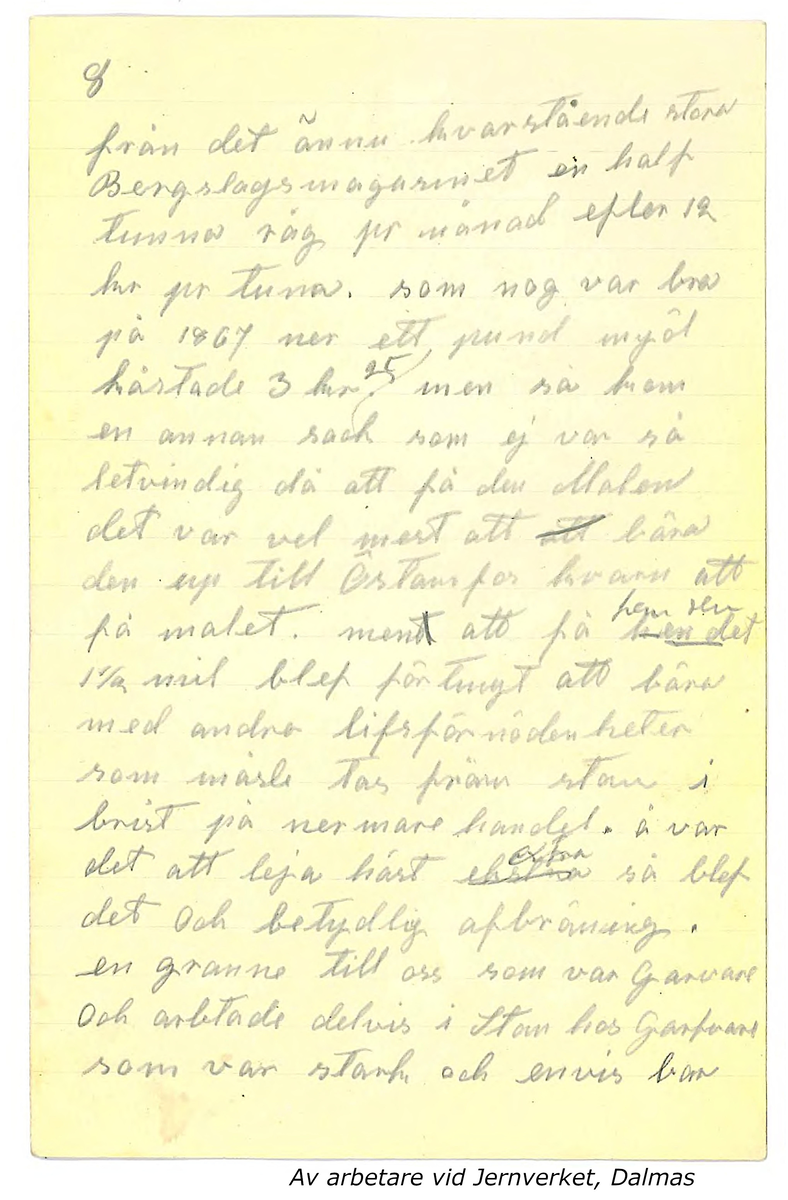 8
från det ännu kvarstående stora
Bergslagsmagasinet en half
tunna råg pr månad efter 12
kr pr tuna. som nog var bra
på 1867 ner ett pund mjöl
kåstade 3 kr 25 men så kom
en annan sack som ej var så
letvindig då att få den Malen
det var vel mest att att bära
den up till Östanfor kvarn att
få malet. men att få hem den det
1 1/2 mil blef för tungt att bära
med andra lifsförnödenheter
som måste tas från stan i
brist på nermare handel. å var
det att leja häst extra så blef
det och betydlig afbräning.
en granne till oss som var Garvare
Och arbtade delvis i Stan hos Garfvare
som var stark och envis bar
Av arbetare vid Jernverket, Dalmas